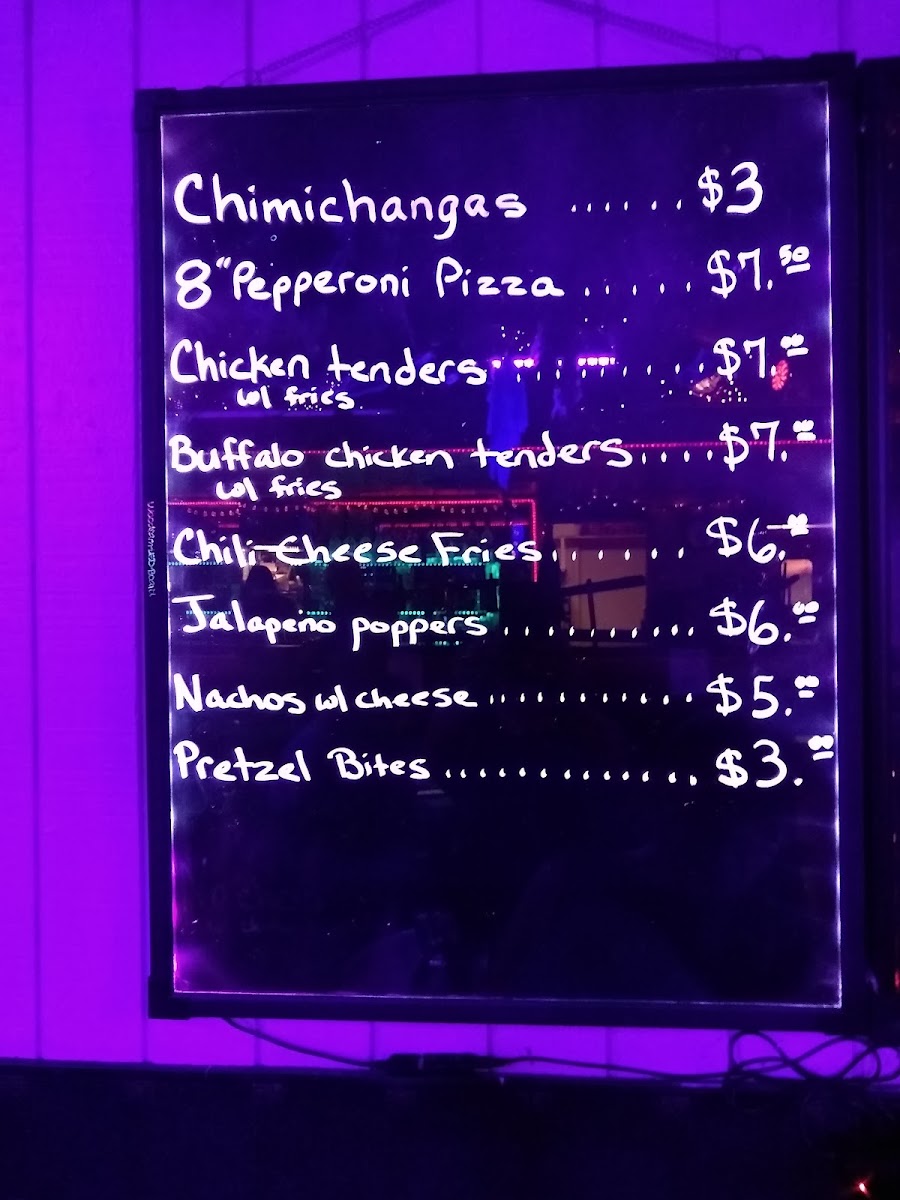 Chimichangas ...... $3
8" Pepperoni Pizza ...... $7.50
Chicken tenders ......... $7.00
w/ fries
Buffalo chicken tenders .... $7.00
w/ fries
Chili Cheese Fries ....... $6.00
Jalapeño poppers ........... $6.00
Nachos w/ cheese ............ $5.00
Pretzel Bites .............. $3.00